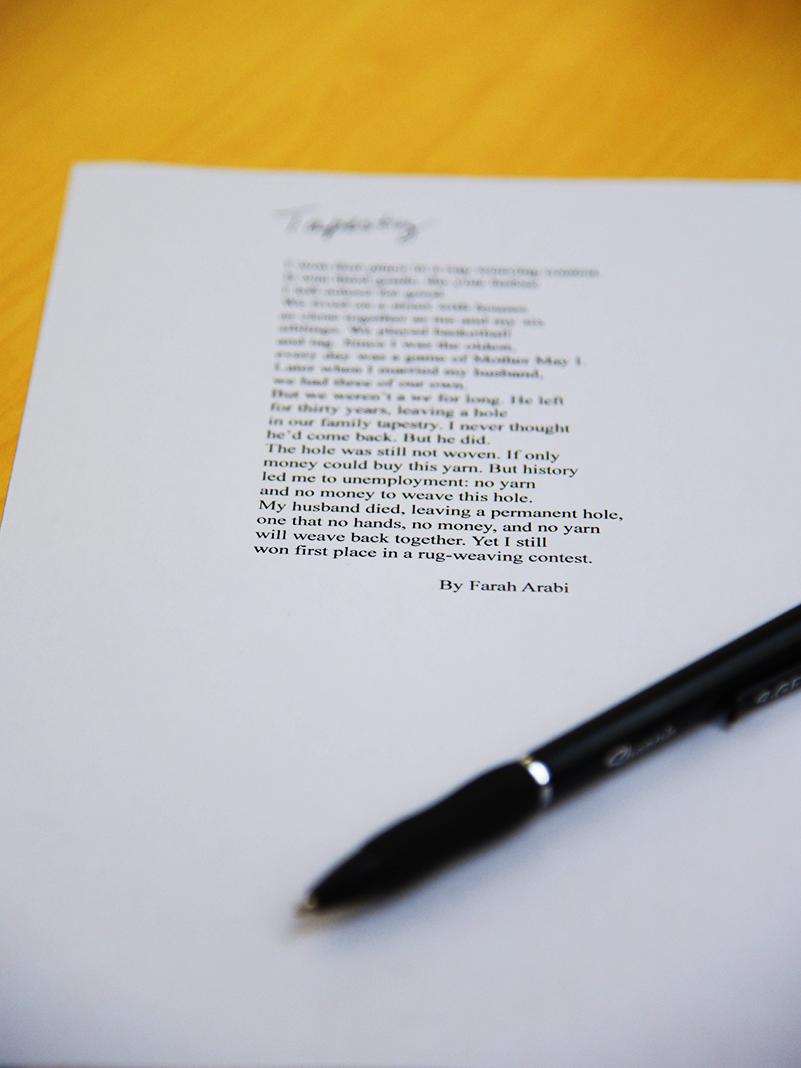 Tapestry
I won first place in a rug-weaving contest.
I felt
We lived on a street with houses
as close together as me and my six
siblings. We played basketball
and tag. Since I was the oldest,
every day was a game of Mother May I.
Later when I married my husband,
we had three of our own.
But we weren't a we for long. He left
for thirty years, leaving a hole
in our family tapestry. I never thought
he'd come back. But he did.
The hole was still not woven. If only
money could buy this yarn. But history
led me to unemployment: no yarn
and no money to weave this hole.
My husband died, leaving a permanent hole,
one that no hands, no money, and no yarn
will weave back together. Yet I still
won first place in a rug-weaving contest.
By Farah Arabi